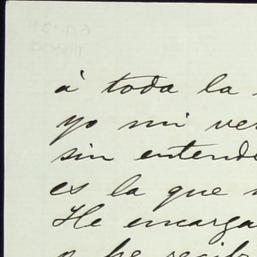 à toda la
yo mi ver
sin entende
es la que
He encarga